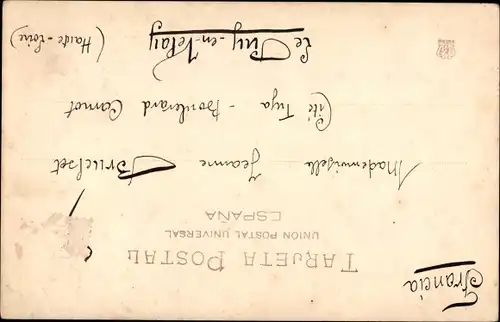 TARJETA POSTAL
UNION POSTAL UNIVERSAL
ESPAÑA
Mademoiselle Jeanne
Cité Tuja - Boulevard Carnot
Le Puy-en-Velay
(Haute-Loire)
Francia